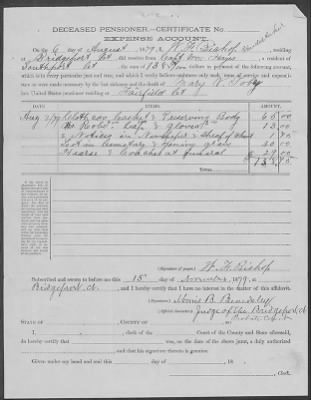 DECEASED PENSIONER.—CERTIFICATE No.
EXPENSE ACCOUNT.
On the 6 day of August 1879, W. F. Bishop Undertaker, residing
at Bridgeport Ct did receive from Capt Wm, a resident of
Southport Ct 138 dollars in payment of the following account,
which is every particular just and true, and which I verily believe embraces only such items of service and expendi-
ture as were made necessary by the last sickness and death of the late Mary R
late United States pensioner residing at Fairfield Ct
DATE. ITEMS. AMOUNT.
Aug Cloth cov casket & Preserving Body 65.00
Robe & gloves 13.00
2 Notices in Newspaper & 1.
Lot in Cemetery & opening grave 30.00
Hearse & Coaches at funeral 29.00
(Signature of payee.) W. F. Bishop
Subscribed and sworn to before me this 15 day of November, 1879, at
Bridgeport, Ct., and I hereby certify that I have no interest in the matter of this affidavit.
(Signature.) B. Beardsley
Judge of the Bridgeport, Ct
Probate Court
STATE OF , COUNTY OF , ss:
I, , clerk of the Court of the County and State aforesaid, do
hereby certify that was, on the date of the above jurat, a duly authorized
, and that his signature thereto is genuine.
Given under my hand and seal this day of , 18
, Clerk.